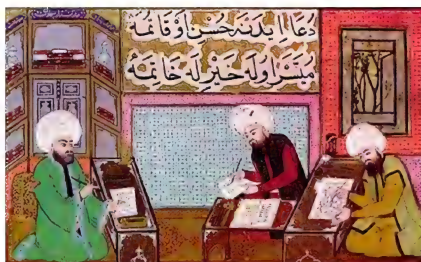 دعا ایدنه حسن اوقاتمه
میسر اوله خیر له خاتمه